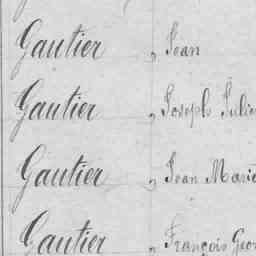 Gautier, Jean
Gautier, Joseph Julie
Gautier, Jean Marie
Gautier, François Geor